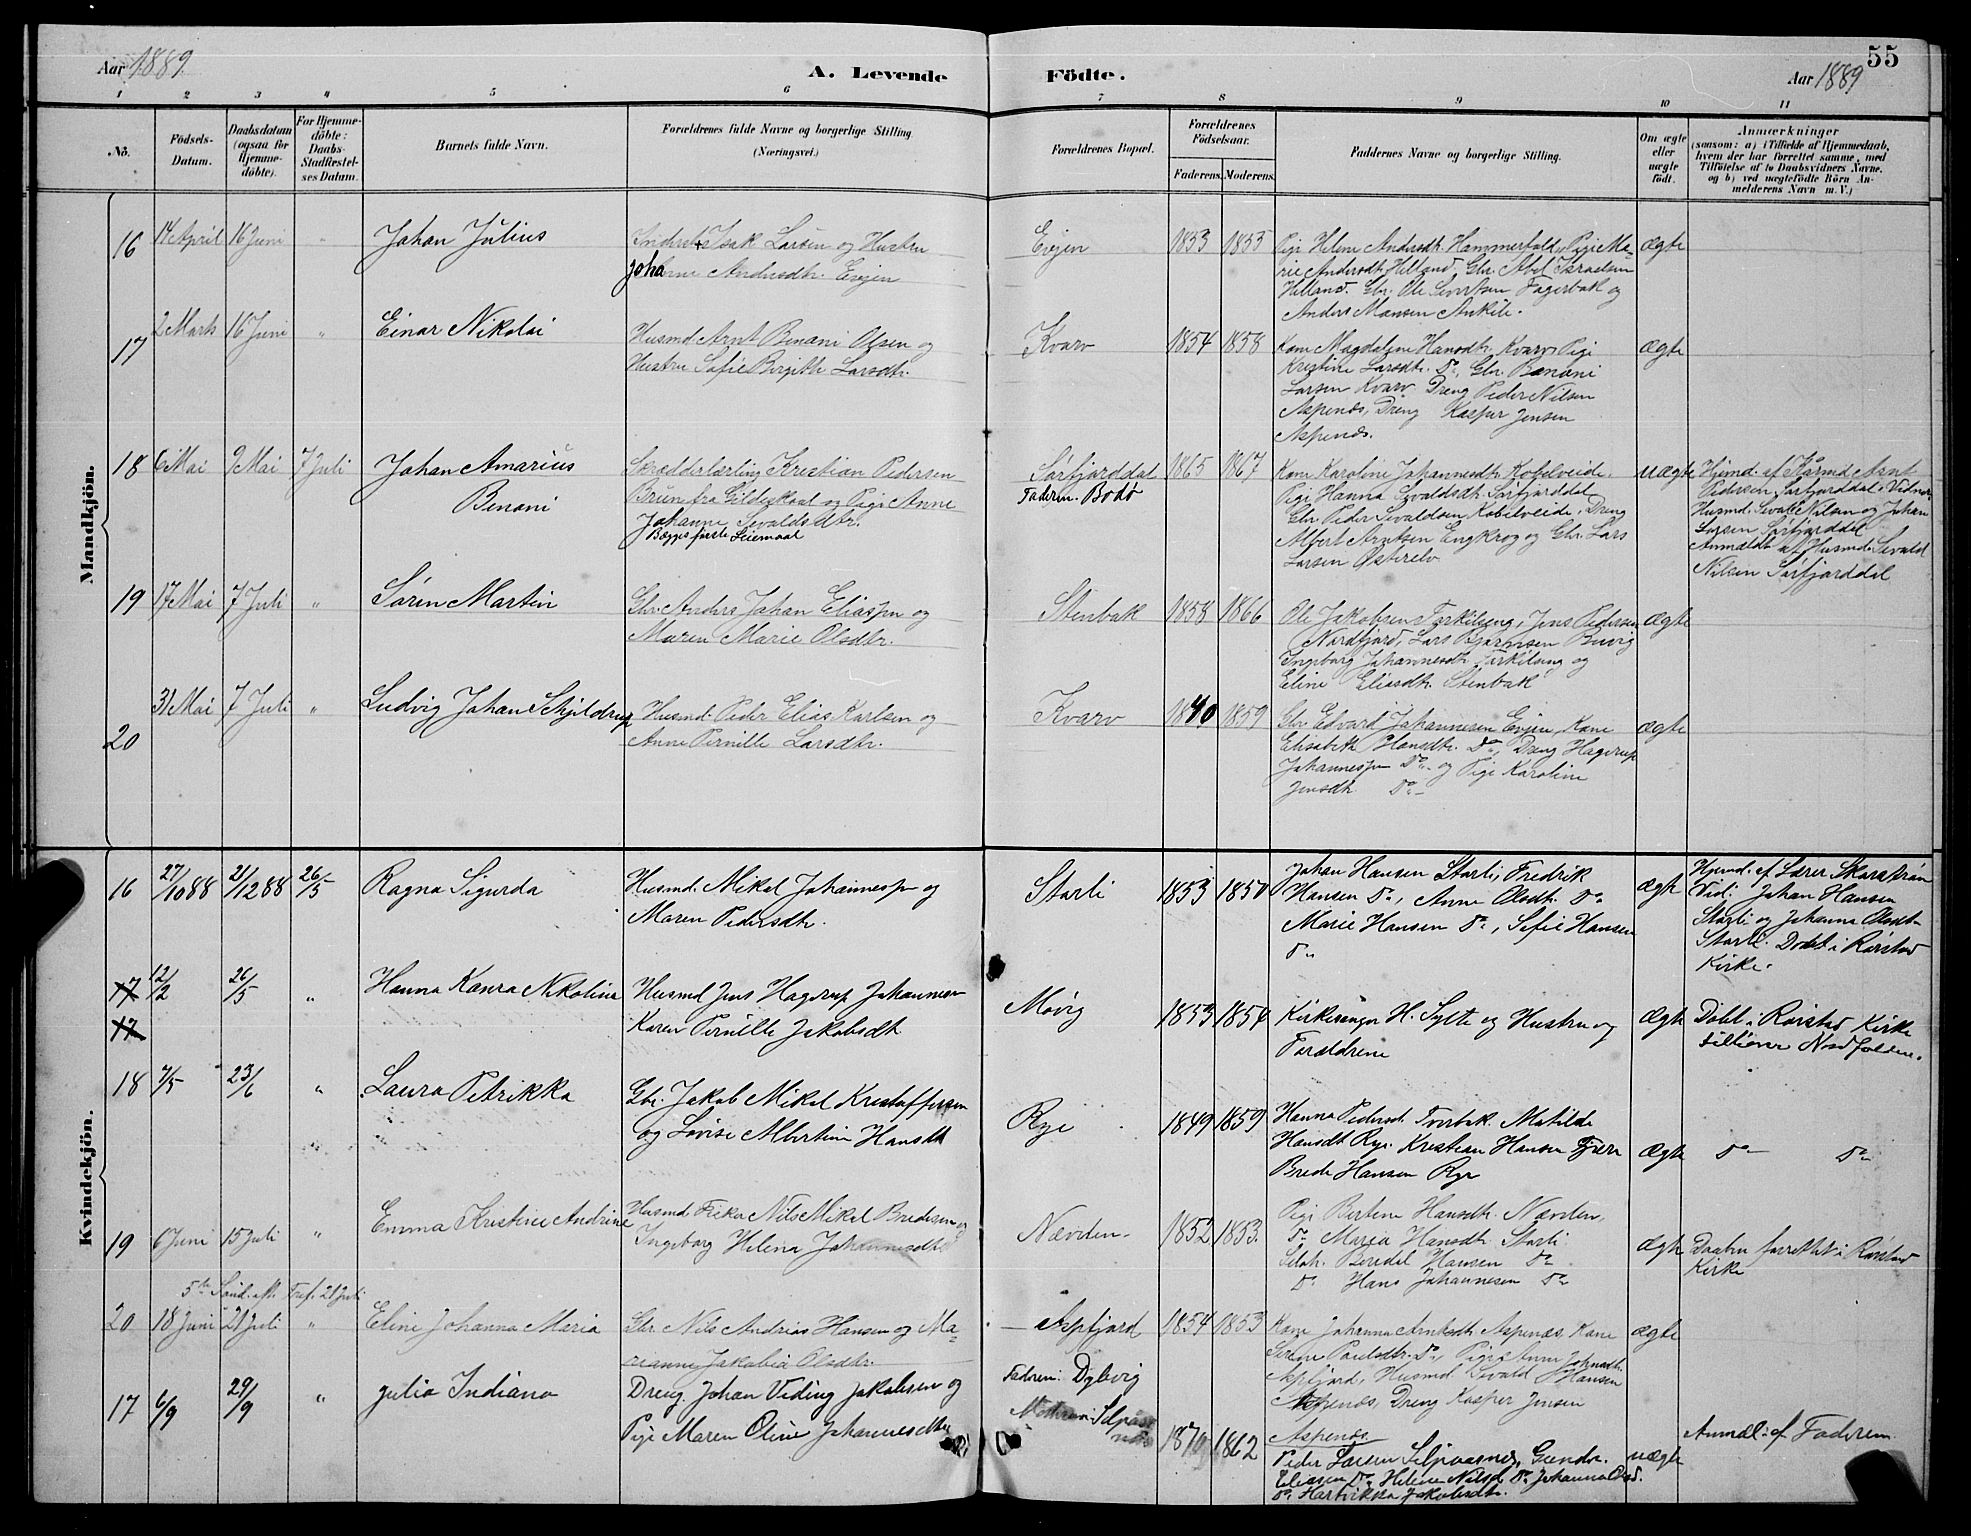 Aar 1889
A. Levende Födte.
Aar 1889
55
1 2 3 4 5 6 7 8 9 10 11
No.
Födsels-Datum.
Daabsdatum (ogsaa for Hjemme-döbte).
For Hjemme-döbte: Daabs-Stadfæstel-ses Datum.
Barnets fulde Navn.
Forældrenes fulde Navne og borgerlige Stilling. (Næringsvei.)
Forældrenes Bopæl.
Forældrenes Födselsaar.
Faderens. Moderens.
Faddernes Navne og borgerlige Stilling.
Om ægte eller uægte födt.
Anmærkninger
(saasom: a) i Tilfælde af Hjemmedaab,
hvem der har forrettet samme, med
Tilföielse af to Daabsvidners Navne.
og b) ved uægtefödte Börn An-
melderens Navn m. V.)
Mandkjön.
16 14 April 16 Juni " Johan Julius
Inderst Isak Larsen og Hustru
Johanne Andersdtr. Evjen
Evjen 1853 1855
Pige Helene Andersdtr. Hammerfald, Pige Ma-
rie Andersdtr. Helland, Gbr. Abel Israelsen
Helland. Gbr. Ole Sivertsen Fagerbak og
Anders Monsen Ankile.
ægte
17 2 Marts 16 Juni " Einar Nikolai
Husmd. Arnt Benoni Olsen og
Hustru Sofie Birgithe Larsdtr.
Kvarv 1854 1858
Kone Magdalene Hansdtr. Kvarv, Pige
Kristine Larsdtr. Do, Gbr. Benoni
Larsen Kvarv, Dreng Peder Nilsen
Aspenæs, Dreng Kasper Jensen
Aspenæs.
ægte
18 6 Mai 9 Mai 7 Juli Johan Amarius
Benoni
Skrædderlærling Kristian Pedersen
Bruun fra Gildeskaal og Pige Anne
Johanne Sevaldsdtr.
Begges første Leiermaal
Sørfjorddal
Faderen: Bodø
1865 1867
Kone Karoline Johannesdtr. Kobbelveide.
Pige Hanna Sevaldsdtr. Sørfjorddal
Gbr. Peder Sevaldsen Kobbelveide, Dreng
Albert Arntsen Engkrog og Gbr. Lars
Larsen Østerelv
uægte
Hjmd. af Kårmd. Arnt
Pedersen Sørfjorddal, Vidner
Husmd. Sevald Nilsen og Johan
Larsen Sørfjorddal
Anmeldt af Husmd. Sevald
Nilsen Sørfjorddal
19 17 Mai 7 Juli " Sørin Martin
Gbr. Anders Johan Eliassen og
Maren Marie Olsdtr.
Stenbak 1858 1866
Ole Jakobsen Torkilseng, Jens Pedersen
Nordfjord, Lars Bjørnsen Buvig
Ingeborg Johannesdtr. Torkilseng og
Eline Eliasdtr. Stenbak
ægte
20 31 Mai 7 Juli " Ludvig Johan Schjeldrup
Husmd. Peder Elias Karlsen og
Anne Pernille Larsdtr.
Kvarv 1840 1859
Gbr. Edvard Johannesen Evjen, Kone
Elisabeth Hansdtr. Do, Dreng Hagerup
Johannessen Do og Pige Karoline
Jensdtr. Do
ægte
Kvindekjön.
16 27/10 88 21/12 88 26/5 Ragna Sigurda
Husmd. Mikal Johannessen og
Maren Pedersdtr.
Storli 1853 1850
Johan Hansen Storli, Fredrik
Hansen Do, Anne Olsdtr. Do
Marie Hansen Do, Sofie Hansen
Do
ægte
Hjemd. af Lærer
Vid: Johan Hansen
Storli og Johanna Olsdtr.
Storli. Døbt i Rørstad
Kirke.
17 17 12/2 26/5 " Hanna Kanra Nikolina
Husmd. Jens Hagerup Johannesen
Karen Pernille Jakobsdtr.
Møvig 1853 1854
Kirkesanger H. Sylte og Hustru og
Forældrene
ægte
Døbt i Rørstad Kirke
tilhører Nordfolden.
18 7/5 23/6 " Laura Petrikka
Gbr. Jakob Mikal Kristoffersen
og Lovise Albertine Hansdtr.
Rye 1849 1859
Hanna Pedersd. Tverbak. Matilde
Hansdtr. Rye. Kristian Hansen
Brede Hansen Rye
ægte Do Do
19 6 Juni 15 Juli " Emma Kristine Andrine
Husmd. Fisker Nils Mikal Bredesen og
Ingeborg Helena Johannesdtr.
Nævden 1852 1853
Pige Bertine Hansdtr. Nævden,
Do Maria Hansdtr. Storli
Hansen Do
Do Hans Johannesen Do
ægte
Daaben forrettet i Rørstad
Kirke
5te Sönd. eft. Tref. 21 Juli
20 18 Juni 21 Juli " Eline Johanna Maria
Gbr. Nils Andrias Hansen og Ma-
rianne Jakobia Olsdtr.
Aspfjord 1854 1853
Kone Johanna Arntsdtr. Aspenæs, Kone
Serine Paulsdtr. Do, Pige Anne Johnsdtr.
Aspfjord, Husmd. Sevald Hansen
Aspenæs, Dreng Kasper Jensen
Aspenæs
ægte
17 6/9 29/9 " Julia Indiana
Dreng Johan Viding Jakobsen og
Pige Maren Oline Johannesdtr.
Faderen: Dybvig
Moderen: Silpaas-
næs
1870 1862
Peder Larsen Silpaasnæs, Gunder
Eliasen Do, Helene Nilsd. Do, Johanna Olsd.
Do Hartvikka Jakobsdtr.
uægte
Anmeld. af Faderen